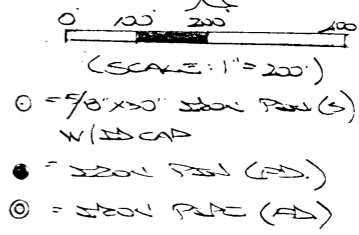 0' 100' 200' 400
(SCALE: 1" = 200')
= 5/8" X 30" IRON PIN (S)
W/ ID CAP
= IRON PIN (FD.)
= IRON PIPE (FD)